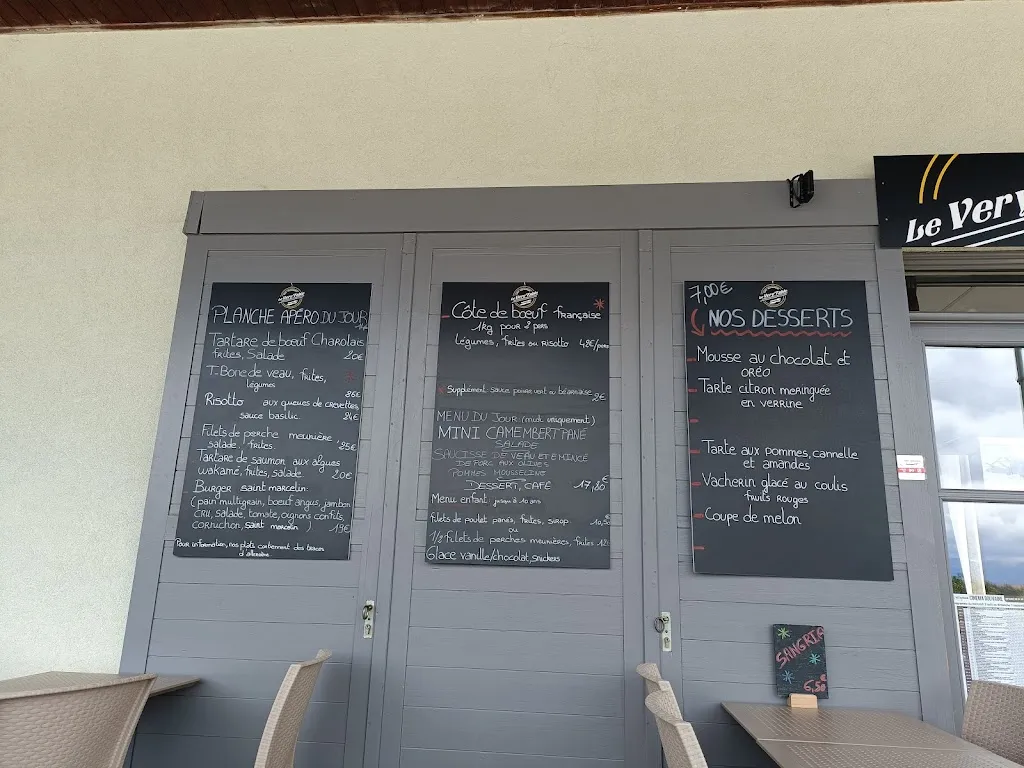 Le Very
PLANCHE APÉRO DU JOUR
Tartare de bœuf Charolais
frites, Salade 20€
T-Bone de veau, frites,
légumes
36€
Risotto aux queues de crevettes,
sauce basilic 24€
Filets de perche meunière
salade, frites 25€
Tartare de saumon aux algues
wakamé, frites, salade 20€
Burger saint marcelin:
(pain multigrain, bœuf angus, jambon
CRU, salade, tomate, oignons confits,
cornichon, saint marcelin) 19€
Pour information, nos plats contiennent des traces
d'allergène
Côte de bœuf française
1kg pour 2 pers
légumes, frites ou Risotto 48€/pers
Supplément sauce poivre vert ou béarnaise
2€
MENU DU JOUR (midi uniquement)
MINI CAMEMBERT PANÉ
SALADE
SAUCISSE DE VEAU ET EMINCÉ
DE PORC AUX OLIVES
POMMES MOUSSELINE
DESSERT, CAFÉ 17,80€
Menu enfant jusqu'à 10 ans
filets de poulet panés, frites, sirop 10,50
ou
1/2 filets de perches meunières, frites 12€
Glace vanille/chocolat, snickers
7,00€
NOS DESSERTS
Mousse au chocolat et
ORÉO
Tarte citron meringuée
en verrine
Tarte aux pommes, cannelle
et amandes
Vacherin glacé au coulis
fruits rouges
Coupe de melon
SANGRIA
6,50€